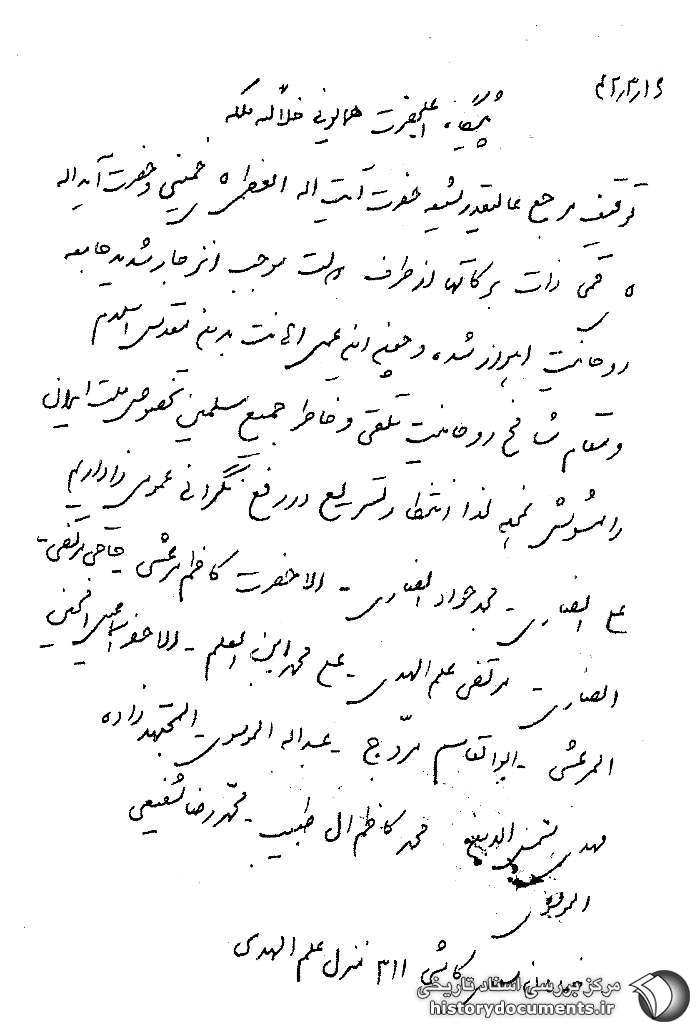 ۴۲٫۳٫۱۶
پیشگاه اعلیحضرت همایونی خلد اله ملکه
توقیف مرجع عالیقدر شیعه حضرت آیت اله العظمی خمینی و حضرت آیة اله
قمی ذات برکاتها از طرف دولت موجب انزجار شدید جامعه
روحانیت ابراز شده و چنین این عمل اهانت بدین مقدس اسلام
و مقام شامخ روحانیت تلقی و خاطر جمیع مسلمین بخصوص ملت ایران
را مشوش نموده لذا انتظار تسریع در رفع نگرانی عمومی را داریم
علی انصاری - محمد جواد انصاری - الاحقر کاظم مرعشی حاجی مرتضی
انصاری - مرتضی علم الهدی - علی محمد ابن العلم - الاحقر الخمینی
المرعشی - ابوالقاسم مروج - عبداله الموسوی - المجتهدزاده
مهدی شمس الدین محمد کاظم ال طبیب - محمد رضا شفیعی
الموسوی
کاشی ۳۱۱ منزل علم الهدی
مرکز بررسی اسناد تاریخی
historydocuments.ir